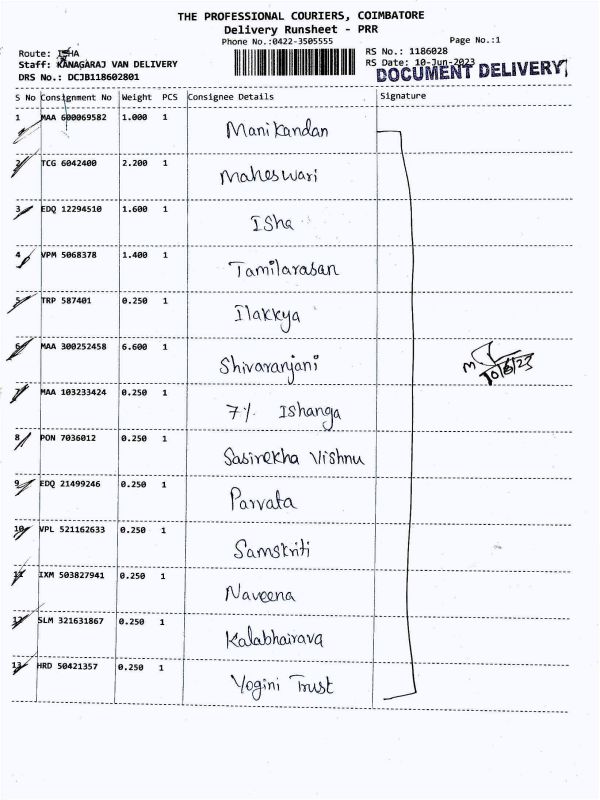 THE PROFESSIONAL COURIERS, COIMBATORE
Delivery Runsheet - PRR
Phone No.:0422-3505555
Page No.:1
Route: ISHA
RS No.: 1186028
Staff: KANAGARAJ VAN DELIVERY
RS Date: 10-Jun-2023
DRS No.: DCJB118602801
DOCUMENT DELIVERY
S No Consignment No Weight PCS Consignee Details Signature
1 MAA 600069582 1.000 1 Manikandan
2 TCG 6042400 2.200 1 Maheswari
3 EDQ 12294510 1.600 1 Isha
4 VPM 5068378 1.400 1 Tamilarasan
5 TRP 587401 0.250 1 Ilakkya
6 MAA 300252458 6.600 1 Shivaranjani
10/6/23
7 MAA 103233424 0.250 1 7%. Ishanga
8 PON 7036012 0.250 1 Sasirekha Vishnu
9 EDQ 21499246 0.250 1 Parvata
10 VPL 521162633 0.250 1 Samskriti
11 IXM 503827941 0.250 1 Naveena
12 SLM 321631867 0.250 1 Kalabhairava
13 HRD 50421357 0.250 1 Yogini Trust